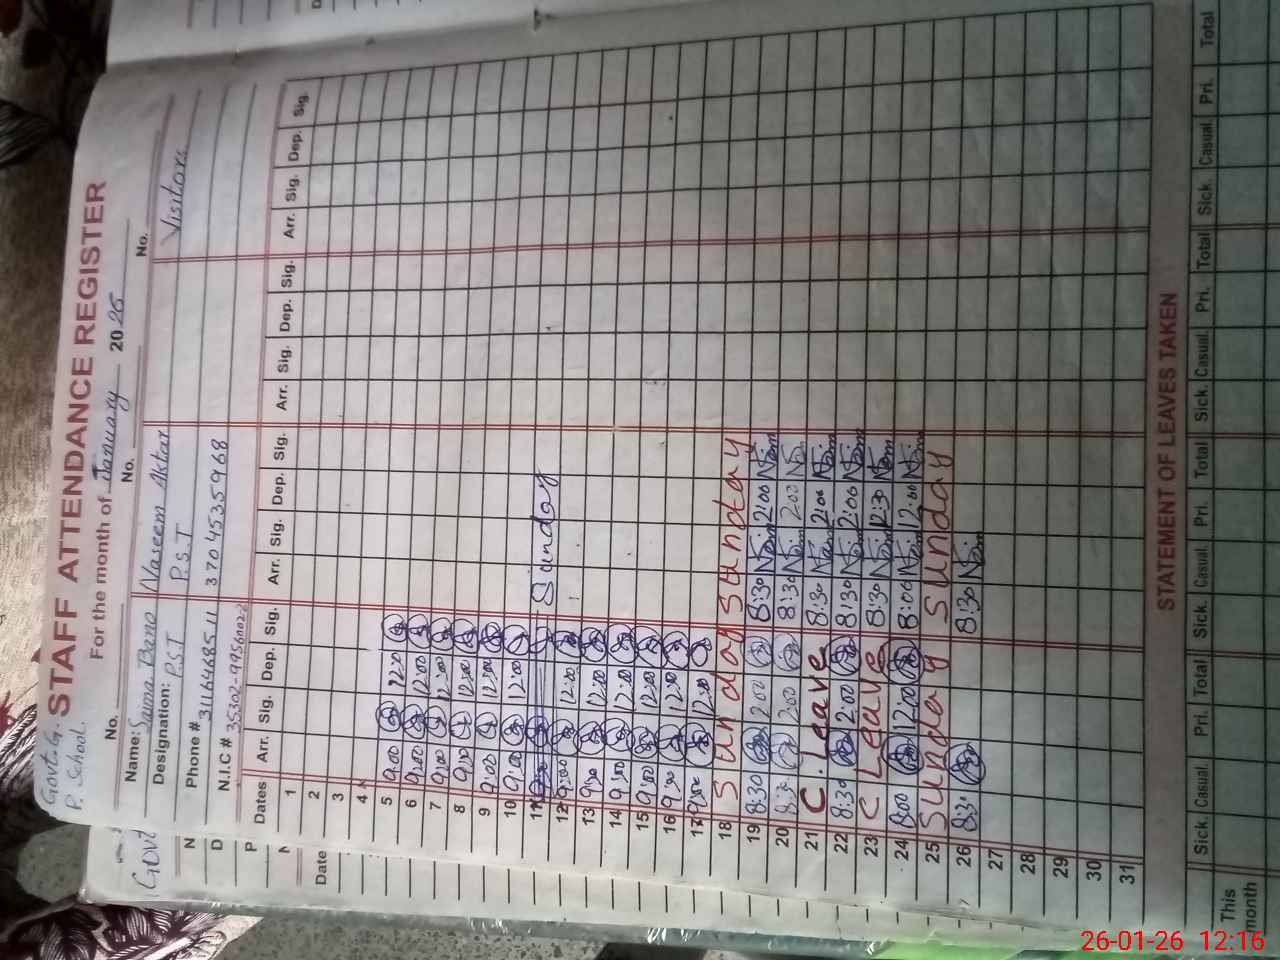 Govt G.
P. School.
STAFF ATTENDANCE REGISTER
For the month of January 2026
No. No. No.
Name: Saima Bano Naseem Aktar Visitors
Designation: P.S.T P.S.T
Phone # 3116468511
N.I.C # 35302-9956002-2 3704535968
Dates Arr. Sig. Dep. Sig. Arr. Sig. Dep. Sig. Arr. Sig. Dep. Sig. Arr. Sig. Dep. Sig.
1
2
3
4
5 9:00 12:00
6 9:00 12:00
7 9:00 12:00
8 9:00 12:00
9 9:00 12:00
10 9:00 12:00
11 Sunday
12 9:00 12:00
13 9:00 12:00
14 9:00 12:00
15 9:00 12:00
16 9:00 12:00
17 9:00 12:00
18 Sunday Sunday
19 8:30 2:00 8:30 2:00
20 8:30 2:00 8:30 2:00
21 C. Leave 8:30 2:00
22 8:30 2:00 8:30 2:00
23 C Leave 8:30 12:30
24 8:00 12:00 8:00 12:00
25 Sunday Sunday
26 8:30 8:30
27
28
29
30
31
STATEMENT OF LEAVES TAKEN
Sick. Casual. Pri. Total Sick. Casual. Pri. Total Sick. Casual. Pri. Total Sick. Casual. Pri. Total
This
month
Govt
N
D
P
Date
26-01-26 12:16